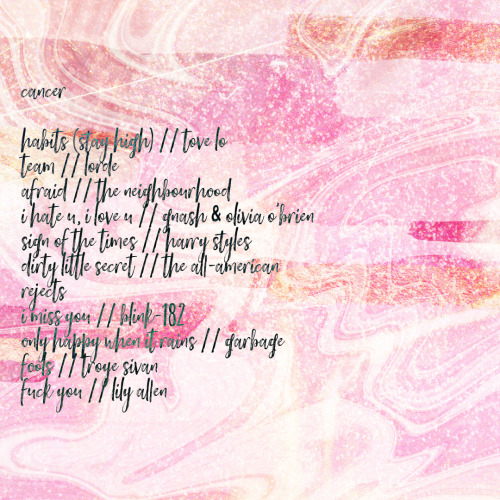 cancer
habits (stay high) // tove lo
team // lorde
afraid // the neighbourhood
i hate u, i love u // gnash & olivia o'brien
sign of the times // harry styles
dirty little secret // the all-american
rejects
i miss you // blink-182
only happy when it rains // garbage
fools // troye sivan
fuck you // lily allen